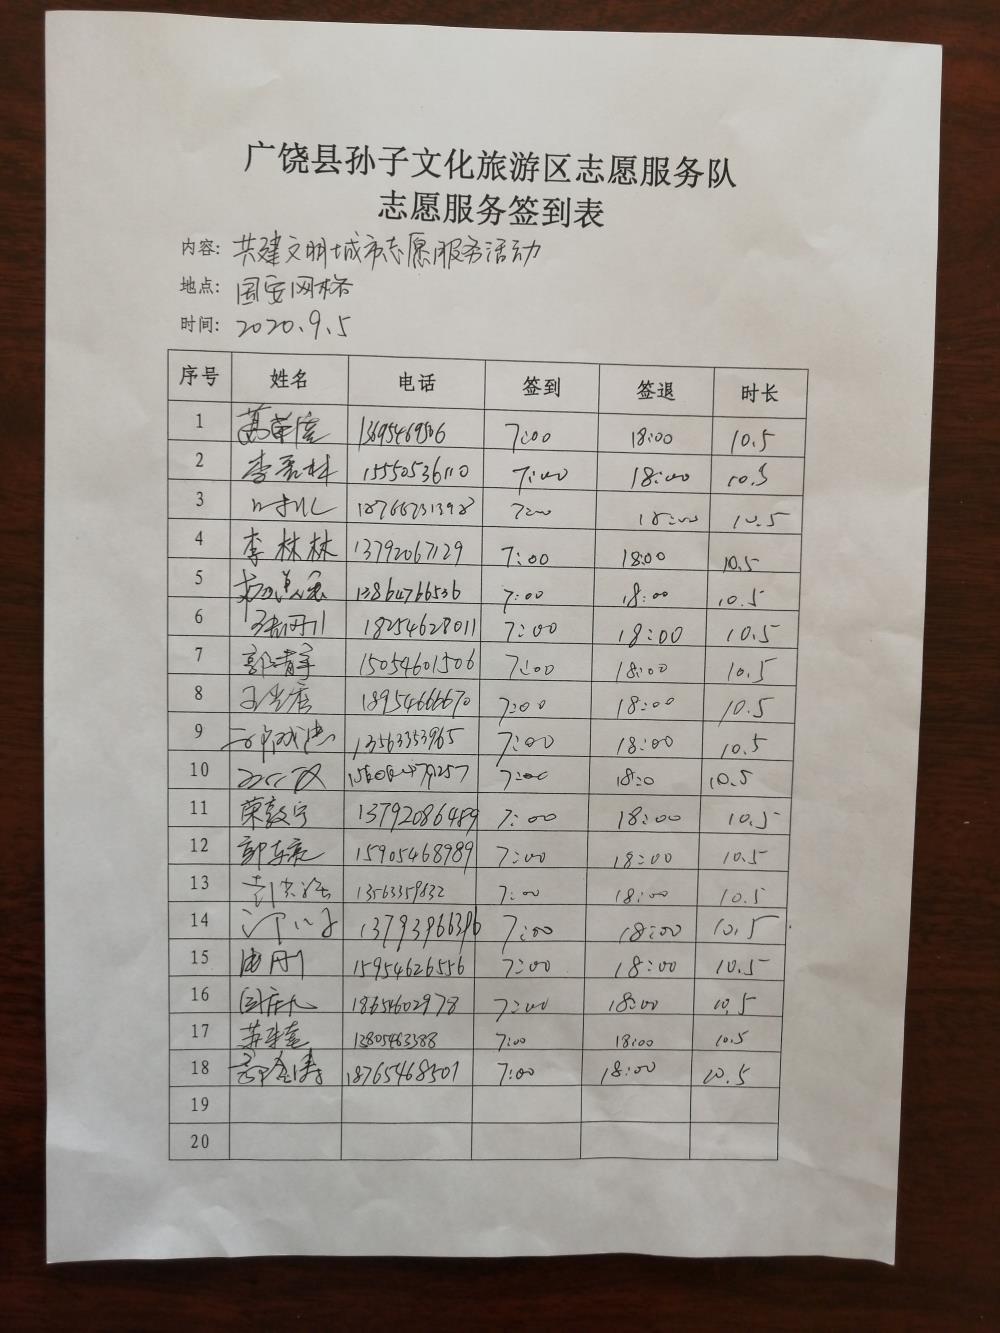 广饶县孙子文化旅游区志愿服务队
志愿服务签到表
内容: 共建文明城市志愿服务活动
地点: 国安网格
时间: 2020.9.5
序号 姓名 电话 签到 签退 时长
1 13695469506 7:00 18:00 10.5
2 15550536110 7:00 18:00 10.5
3 7:00 18:00 10.5
4 李林林 13792067129 7:00 18:00 10.5
5 13864766536 7:00 18:00 10.5
6 18254628011 7:00 18:00 10.5
7 15054601506 7:00 18:00 10.5
8 18954666670 7:00 18:00 10.5
9 13563353965 7:00 18:00 10.5
10 7:00 18:0 10.5
11 荣敦宁 13792086489 7:00 18:00 10.5
12 15905468989 7:00 18:00 10.5
13 13563359632 7:00 18:00 10.5
14 7:00 18:00 10.5
15 15954626556 7:00 18:00 10.5
16 18654602978 7:00 18:00 10.5
17 13805463388 7:00 18:00 10.5
18 18765468507 7:00 18:00 10.5
19
20